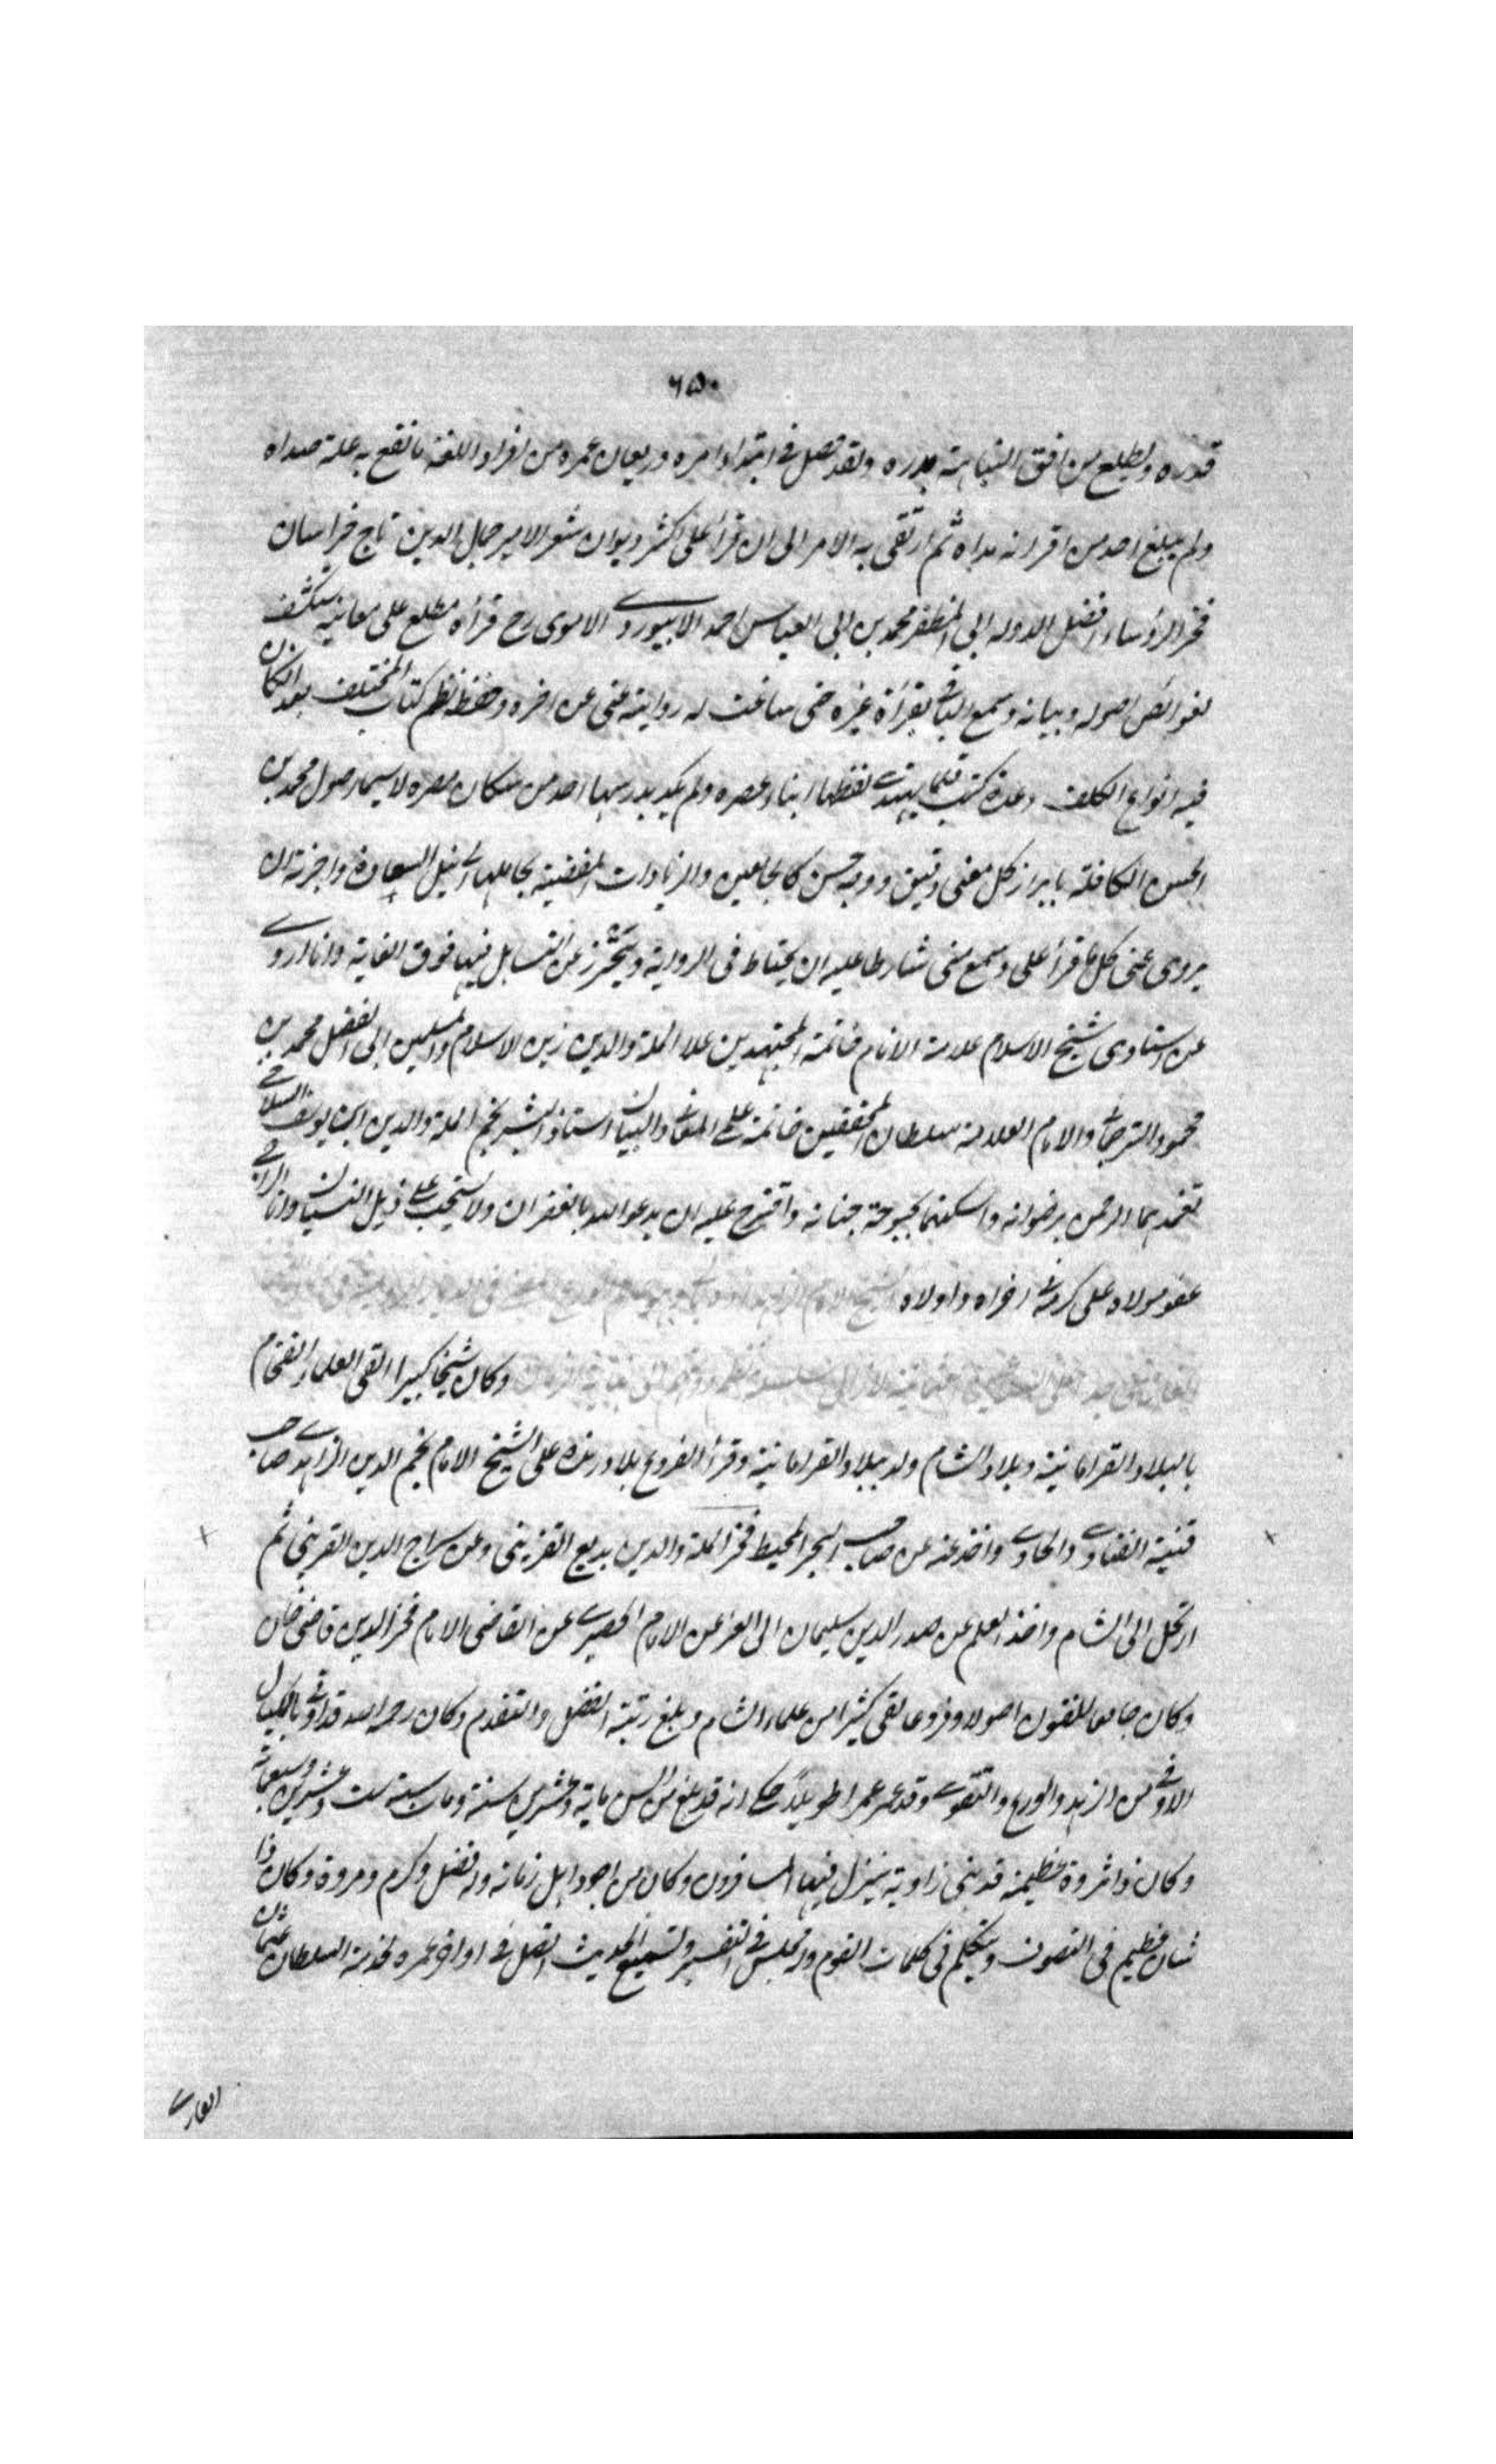 ٦٥٠
قدره ويطلع من افق النباهة بدره ولقد حصل في ابتداء امره وريعان عمره من افراد اللغة ما نقع به علة صداه
ولم يبلغ احد من اقرانه مداه ثم ارتقى به الامر الى ان قرأ على اكثر ديوان شعر الامير جمال الدين تاج خراسان
فخر الرؤساء افضل الدولة ابي المظفر محمد بن ابي العباس احمد الابيوردي الاموي رح قرأة مطلع على معانيه متكشف
لغوائص اصوله وبيانه وسمع الباقي بقرأة غيره حتى ساغت له روايته عني عن اخره وحفظ نظم كتاب المختلف بعد الكان
فيه انواع الكلف وعدة كتب قلما يهتدي لفظها ابناء عصره ولم يكد يدرسها احد من سكان مصره لاسيما اصول محمد بن
الحسن الكافلة بابراز كل معنى دقيق ووجه حسن كالجامعين والزيادات المفضية بحاملها الى نيل السعادة واجزته ان
يروي عني كل ما قرأ علي وسمع مني شارطا عليه ان يحتاط في الرواية ويتحرز عن التساهل فيها فوق الغاية وانا اروي
عن استاذي شيخ الاسلام علامة الانام خاتمة المجتهدين علاء الملة والدين زين الاسلام والمسلمين ابي الفضل محمد بن
محمود الترجماني والامام العلامة سلطان المحققين خاتمة علماء المعاني والبيان استاذ البشر نجم الملة والدين ابن يوسف السلامي
تغمدهما الرحمن برضوانه واسكنهما بحبوحة جنانه واقترح عليه ان يدعو الله بالغفران ولا يسحب على ذيل النسيان وانا الراجي
عفو مولاه على كرمه اخراه واولاه
وكان شيخا كبيرا لقي العلماء الفخام
بالبلاد القرامانية وبلاد الشام ولد ببلاد القرامانية وقرأ الفروع بلارنده على الشيخ الامام نجم الدين الزاهدي صاحب
قنية الفتاوي والحاوي واخذ عنه عن صاحب البحر المحيط فخر الملة والدين بديع القزيني وعن سراج الدين القزيني ثم
ارتحل الى الشام واخذ العلم عن صدر الدين سليمان ابي العز عن الامام الحصيري عن القاضي الامام فخر الدين قاضي خان
وكان جامعا للفنون اصولا وفروعا لقي كثيرا من علماء الشام وبلغ رتبة الفضل والتقدم وكان رحمه الله قد اوفي بالمكيال
الاوفى من الزهد والورع والتقوى وقد عمر عمرا طويلا حكي انه قد بلغ من السن ماية وعشرين سنة ومات سنة ست وعشرين وسبعماية
وكان ذا ثروة عظيمة قد بنى زاوية ينزل فيها المسافرون وكان من اجود اهل زمانه وله فضل وكرم ومروة وكان ذا
شان عظيم في التصوف ويتكلم في كلمات القوم وله مجلس في التفسير وتسميع الحديث اتصل في اواخر عمره لخدمة السلطان عثمان
الغازي